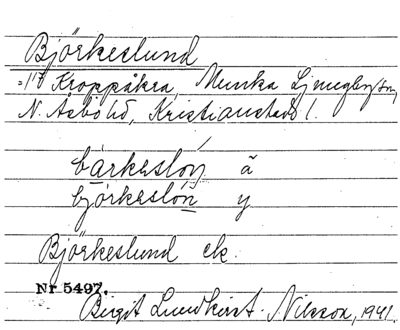 Björkeslund
Kroppåkra, Munka Ljungby sn,
N. Åsbo hd, Kristianstads l.
bjørkeslón y
Björkeslund ek.
Nr 5497.
Birgit Lundkvist-Nilsson, 1941.